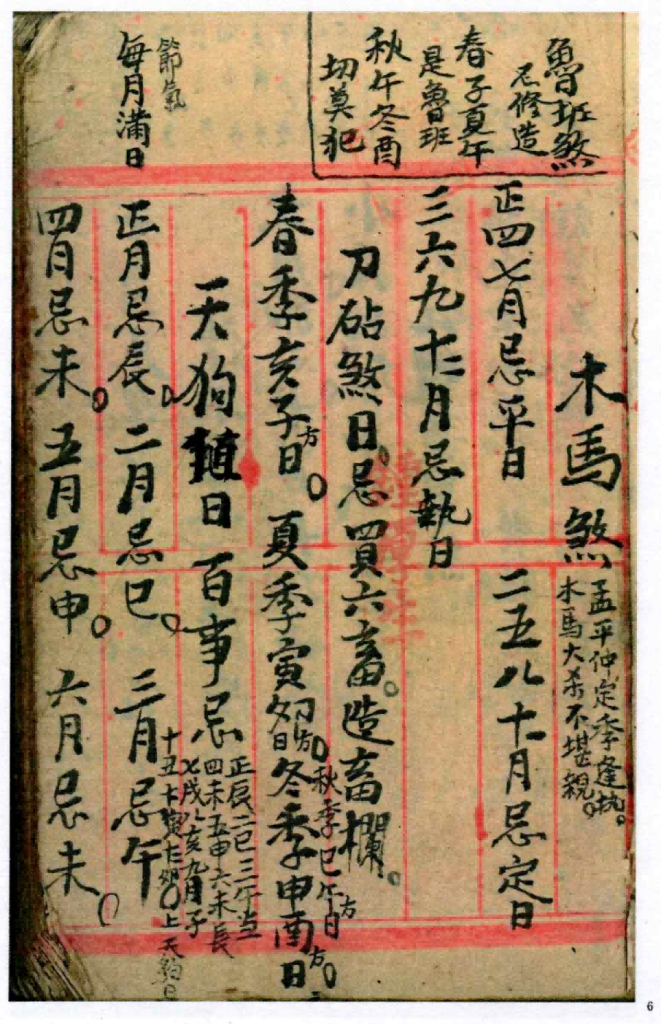 魯班煞
不修造
春子夏午
是魯班
秋午冬酉
切莫犯
節氣
每月満日
木馬煞
孟平仲定季逢执。
木馬大杀不堪親。
正四七月忌平日 二五八十月忌定日
三六九十二月忌執日
刀砧煞日。忌買六畜。造畜欄。
春季亥子日方。 夏季寅卯日方。
秋季巳午日方
冬季申酉日方。
天狗日 百事忌
正辰二巳三午
四未五申六未
亥九月子
十丑十寅
上天狗日
正月忌辰。 二月忌巳。 三月忌午
四月忌未。 五月忌申。 六月忌未。
6